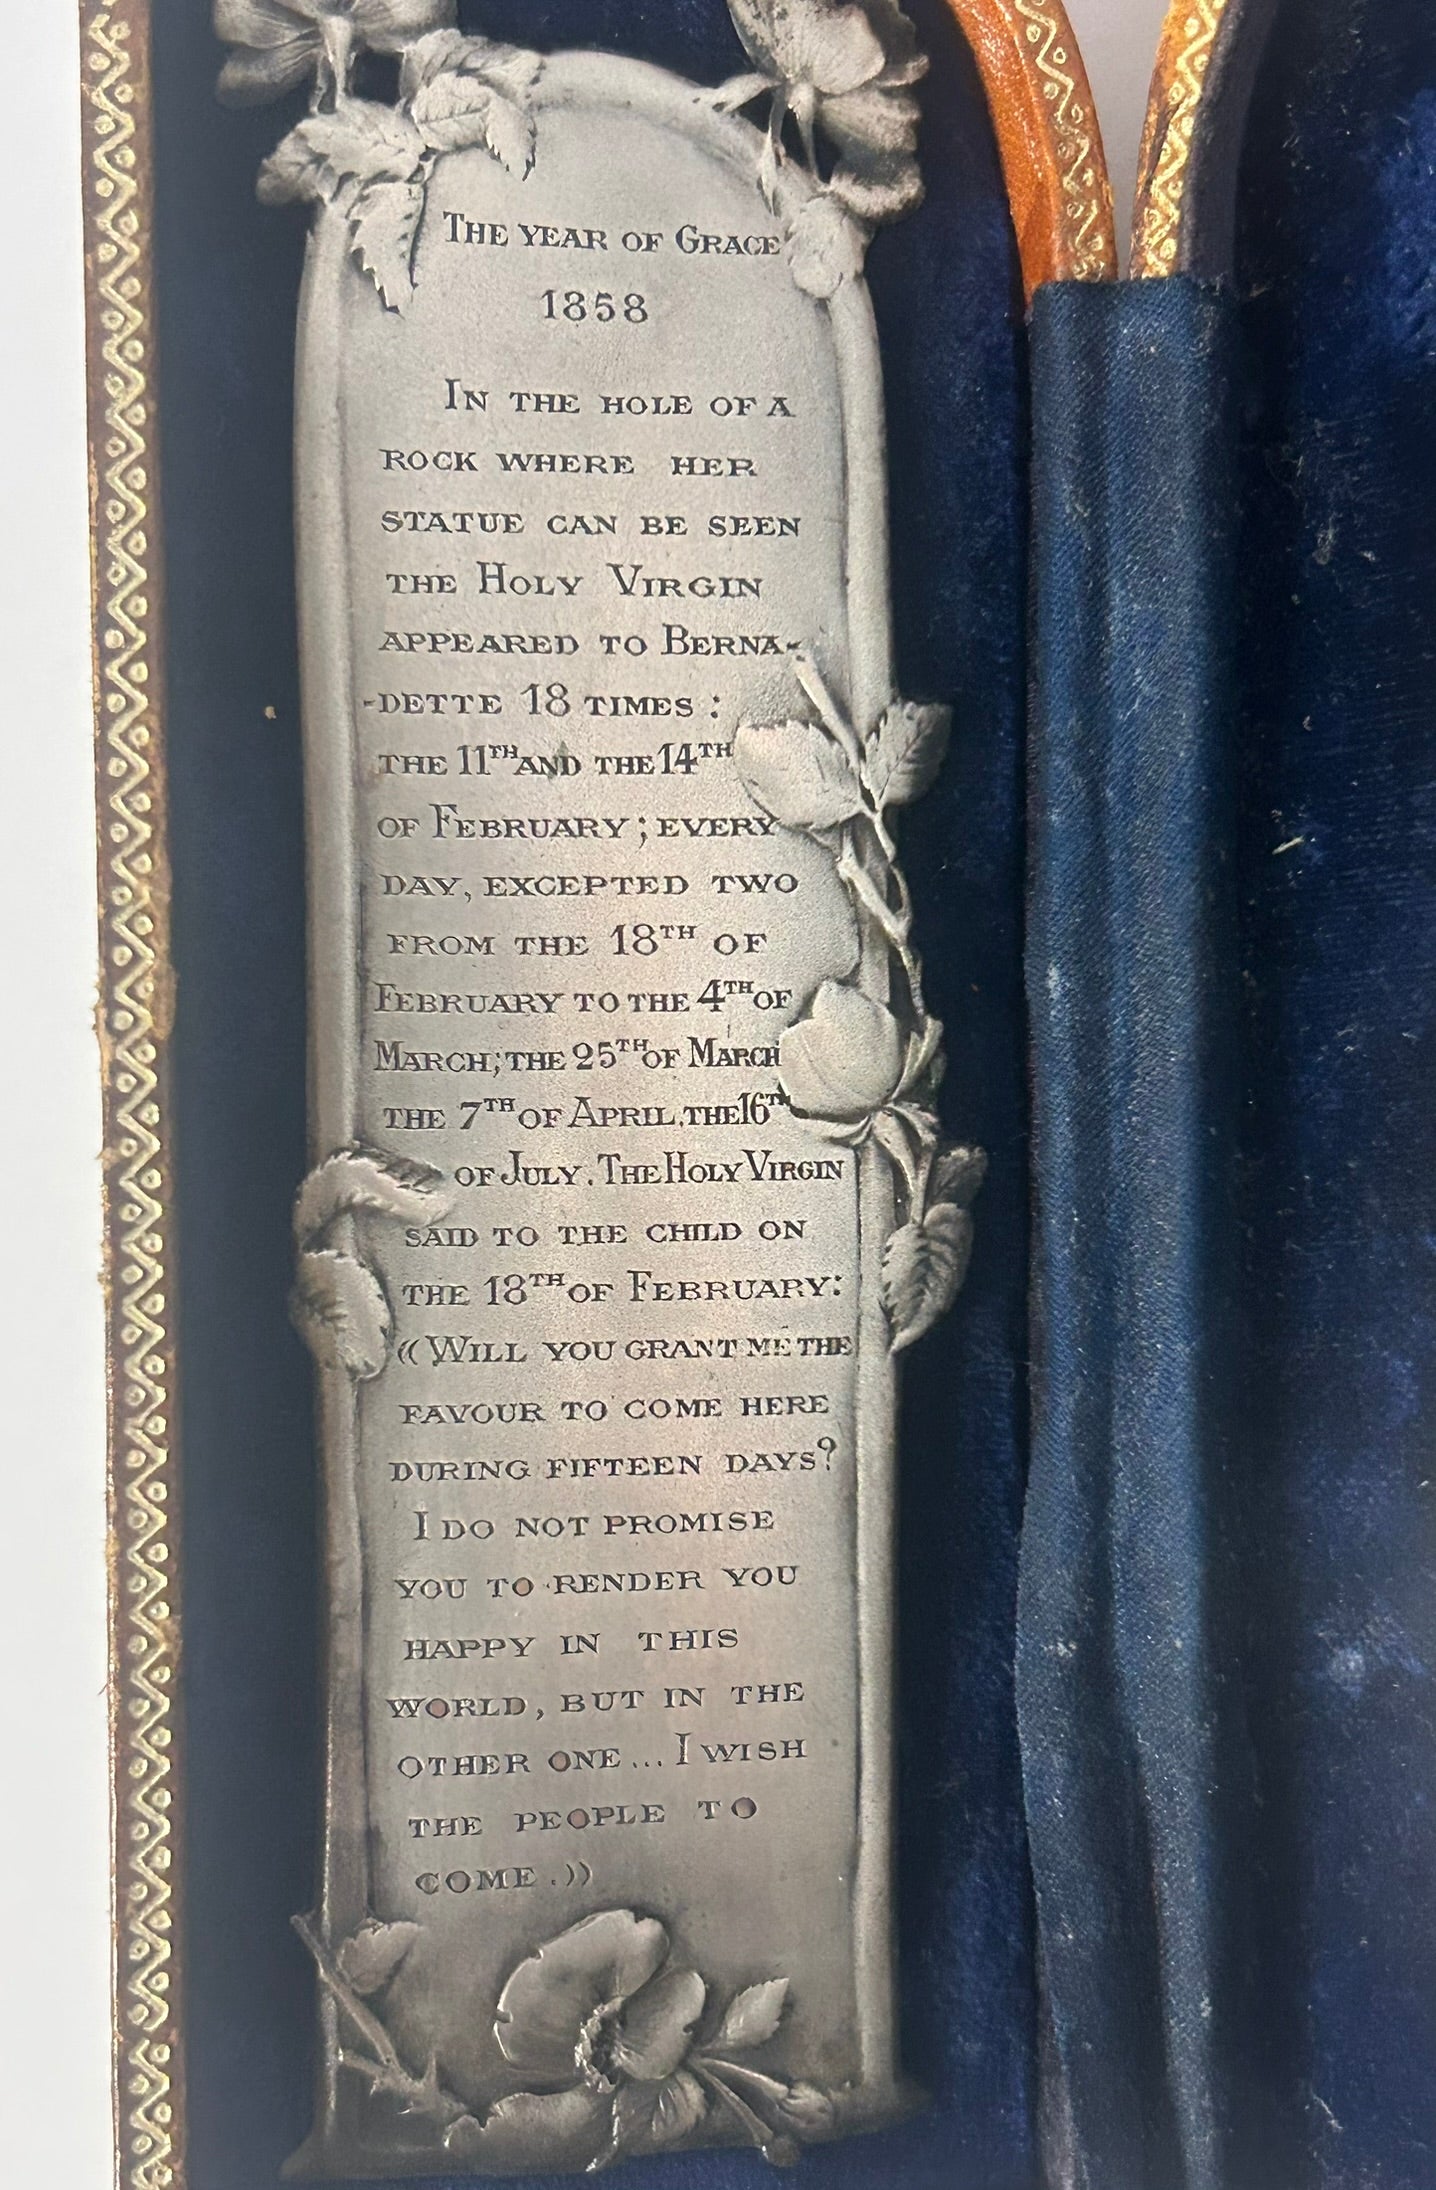 THE YEAR OF GRACE
1858
IN THE HOLE OF A
ROCK WHERE HER
STATUE CAN BE SEEN
THE HOLY VIRGIN
APPEARED TO BERNA-
-DETTE 18 TIMES :
THE 11TH AND THE 14TH
OF FEBRUARY ; EVERY
DAY, EXCEPTED TWO
FROM THE 18TH OF
FEBRUARY TO THE 4TH OF
MARCH; THE 25TH OF MARCH
THE 7TH OF APRIL, THE 16TH
OF JULY. THE HOLY VIRGIN
SAID TO THE CHILD ON
THE 18TH OF FEBRUARY:
((WILL YOU GRANT ME THE
FAVOUR TO COME HERE
DURING FIFTEEN DAYS?
I DO NOT PROMISE
YOU TO RENDER YOU
HAPPY IN THIS
WORLD, BUT IN THE
OTHER ONE... I WISH
THE PEOPLE TO
COME.))